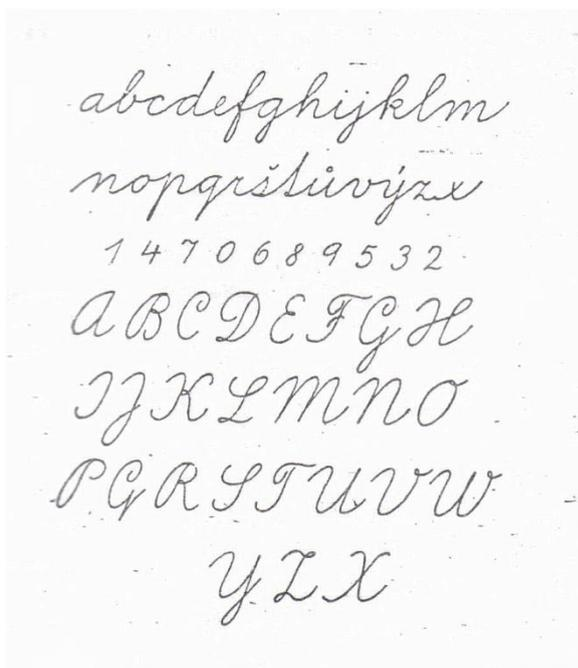 abcdefghijklm
nopqrštůvýzx
1 4 7 0 6 8 9 5 3 2
A B C D E F G H
I J K L M N O
P Q R S T U V W
Y Z X